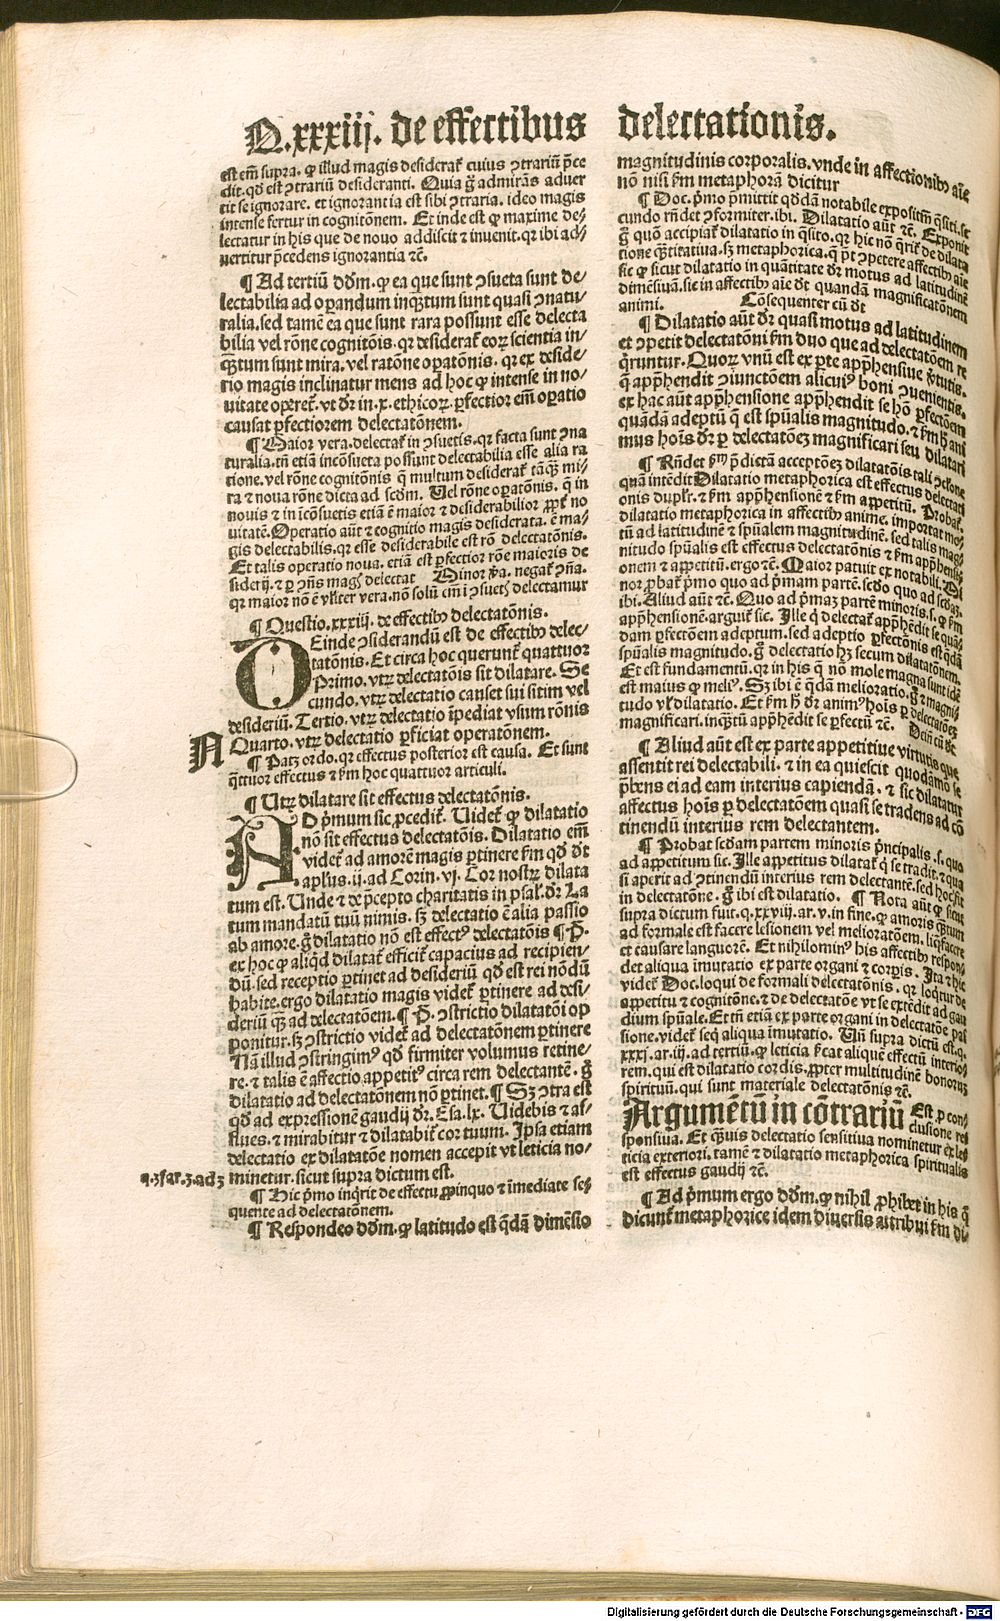 Q.xxxiij. de effectibus delectationis.
est em̄ supra. ꝙ illud magis desiderat͛ cuius ↄtrariū p̄ce
dit. qd̓ est ↄtrariū desideranti. Quia g̊ admirās aduer
tit se ignorare. et ignorantia est sibi ↄtraria. ideo magis
intense fertur in cognitōnem. Et inde est ꝙ maxime de⸗
lectatur in his que de nouo addiscit ⁊ inuenit. qꝛ ibi ad⸗
uertitur p̄cedens ignorantia ⁊c̄.
¶ Ad tertiū dd̓m. ꝙ ea que sunt ↄsueta sunt de⸗
lectabilia ad oꝑandum inqꝫtum sunt quasi ↄnatu⸗
ralia. sed tamē ea que sunt rara possunt esse delecta
bilia vel rōne cognitōis. qꝛ desiderat͛ eoꝝ scientia in⸗
qꝫtum sunt mira. vel ratōne oꝑatōnis. qꝛ ex deside⸗
rio magis inclinatur mens ad hoc ꝙ intense in no⸗
uitate operet͛. vt dr̄ in .x. ethicoꝝ. ꝑfectior em̄ oꝑatio
causat ꝑfectiorem delectatōnem.
¶ Maior vera. delectat͛ in ↄsuetis. qꝛ facta sunt ↄna
turalia. tn̄ etiā incōsueta possunt delectabilia esse alia ra
tione. vel rōne cognitōnis q̄ multum desiderat͛ tāqꝫ mi⸗
ra ⁊ noua rōne dicta ad scd̓m. Vel rōne oꝑatōnis. q̄ in
nouis ⁊ in icōsuetis etiā ē maior ⁊ desiderabilior ꝓpt̓ no
uitatē. Operatio aūt ⁊ cognitio magis desiderata. ē ma⸗
gis delectabilis. qꝛ esse desiderabile est rō delectatōnis.
Et talis operatio noua. etiā est ꝑfectior rōne maioris de
siderij. ⁊ ꝑ ↄn̄s mag̓ delectat Minor p̄a. negat͛ ↄn̄a.
qꝛ maior nō ē vl̓iter vera. nō solū em̄ ī ↄsuet̓ delectamur
¶ Questio .xxxiij. de effectibꝰ delectatōnis.
DEinde ↄsiderandū est de effectibꝰ delec⸗
tatōnis. Et circa hoc querunt͛ quattuor
Primo. vtꝝ delectatōis sit dilatare. Se
cundo. vtꝝ delectatio causet sui sitim vel
desideriū. Tertio. vtꝝ delectatio īpediat vsum rōnis
A Quarto. vtꝝ delectatio ꝑficiat operatōnem.
¶ Patꝫ ordo. qꝛ effectus posterior est causa. Et sunt
q̄ttuor effectus ⁊ fm̄ hoc quattuor articuli.
¶ Utꝝ dilatare sit effectus delectatōnis.
AD p̄mum sic ꝓcedit͛. Videt͛ ꝙ dilatatio
nō sit effectus delectatōis. Dilatatio em̄
videt͛ ad amorē magis ꝑtinere fm̄ qd̓ dt̄
apl̓us .ij. ad Corin. vj. Cor nostꝝ dilata
tum est. Unde ⁊ de p̄cepto charitatis in psal̓. dr̄ La
tum mandatū tuū nimis. sꝫ delectatio ē alia passio
ab amore. g̊ dilatatio nō est effectꝰ delectatōis ¶ P̄.
ex hoc ꝙ aliqd̓ dilatat͛ efficit͛ capacius ad recipien⸗
dū. sed receptio ꝑtinet ad desideriū qd̓ est rei nōdū
habite. ergo dilatatio magis videt͛ ꝑtinere ad desi⸗
deriū qꝫ ad delectatōem. ¶ P̄. ↄstrictio dilatatōi op
ponitur. sꝫ ↄstrictio videt͛ ad delectatōnem ꝑtinere
Nā illud ↄstringimꝰ qd̓ firmiter volumus retine⸗
re. ⁊ talis ē affectio appetitꝰ circa rem delectantē. g̊
dilatatio ad delectatōnem nō ꝑtinet. ¶ Sꝫ ↄtra est
qd̓ ad expressionē gaudij dr̄. Esa. lx. Videbis ⁊ af⸗
flues. ⁊ mirabitur ⁊ dilatabit͛ cor tuum. Ipsa etiam
delectatio ex dilatatōe nomen accepit vt leticia no⸗
q.3ꝭ ar.3.ad 3 minetur. sicut supra dictum est.
¶ Hic p̄mo inq̄rit de effectu ꝓpinquo ⁊ īmediate se⸗
quente ad delectatōnem.
¶ Respondeo dd̓m. ꝙ latitudo est q̄dā dimēsio
magnitudinis corporalis. vnde in affectionibꝰ aīe
nō nisi fm̄ metaphorā dicitur
¶ Doc. p̄mo p̄mittit qd̓dā notabile expositiuū q̄siti. se
cundo rn̄det ↄformiter. ibi. Dilatatio aūt ⁊c̄. Exponit
g̊ quō accipiat͛ dilatatio in q̄sito. qꝛ hic nō q̄rit͛ de dilata
tione q̄ntitatiua. sꝫ metaphorica. q̄ pt̄ ↄpetere affectibꝰ aīe
sic ꝙ sicut dilatatio in quātitate dr̄ motus ad latitudinē
dimēsiuā. sic in affectibꝰ aīe dt̄ quandā magnificatōnem
animi. Cōsequenter cū dt̄
¶ Dilatatio aūt dr̄ quasi motus ad latitudinem
et ↄpetit delectatōni fm̄ duo que ad delectatōem re
q̄runtur. Quoꝝ vnū est ex ꝑte app̄hensiue v̓tutis.
q̄ app̄hendit ↄiunctōem alicuiꝰ boni ↄuenientis.
ex hac aūt app̄hensione app̄hendit se hō ꝑfectōem
quādā adeptū q̄ est spūalis magnitudo. ⁊ fm̄ hͦ ani
mus hoīs dr̄ ꝑ delectatōeꝫ magnificari seu dilatari
¶ Rn̄det fm̄ p̄dictā acceptōeꝫ dilatatōis tali ↄclōne
quā intēdit Dilatatio metaphorica est effectus delectati
onis dupl̓r. ⁊ fm̄ app̄hensionē ⁊ fm̄ appetitū. Probat͛.
dilatatio metaphorica in affectibꝰ anime. importat mo⸗
tū ad latitudinē ⁊ spūalem magnitudinē. sed talis mag⸗
nitudo spūalis est effectus delectatōnis ⁊ fm̄ app̄hensi⸗
onem ⁊ appetitū. ergo ⁊c̄. Maior patuit ex notabili. Mi
nor ꝓbat͛ p̄mo quo ad p̄mam partē. scd̓o quo ad scd̓aꝫ.
ibi. Aliud aūt ⁊c̄. Quo ad p̄maꝫ partē minoris .s. ꝙ fm̄
app̄hensionē. arguit͛ sic. Ille q̄ delectat͛ app̄hēdit se quā⸗
dam ꝑfectōem adeptum. sed adeptio ꝑfectōnis est q̄dā
spūalis magnitudo. g̊ delectatio hꝫ secum dilatatōnem.
Et est fundamentū. qꝛ in his q̄ nō mole magna sunt idē
est maius ꝙ meliꝰ. Sꝫ ibi ē q̄dā melioratio. g̊ ⁊ magni⸗
tudo vl̓ dilatatio. Et fm̄ hͦ dr̄ animꝰ hoīs ꝑ delectatōeꝫ
magnificari. inqꝫtū app̄hēdit se ꝑfectū ⁊c̄. Dein̄ cū dt̄
¶ Aliud aūt est ex parte appetitiue virtutis que
assentit rei delectabili. ⁊ in ea quiescit quodāmō se
p̄bens ei ad eam interius capiendā. ⁊ sic dilatatur
affectus hoīs ꝑ delectatōem quasi se tradens ad cō
tinendū interius rem delectantem.
¶ Probat scd̓am partem minoris p̄ncipalis .s. quo
ad appetitum sic. Ille appetitus dilatat͛ q̄ se tradit. ⁊ qua
si aperit ad ↄtinendū interius rem delectantē. sed hoc fit
in delectatōne. g̊ ibi est dilatatio. ¶ Nota aūt ꝙ sicut
supra dictum fuit. q. xxviij. ar. v. in fine. ꝙ amoris qꝫtum
ad formale est facere lesionem vel melioratōem. liq̄facere
et causare languorē. Et nihilominꝰ his affectibꝰ respon⸗
det aliqua īmutatio ex parte organi ⁊ corꝑis. Ita ⁊ hic
videt͛ Doc. loqui de formali delectatōnis. qꝛ loqt̄ur de
appetitu ⁊ cognitōne. ⁊ de delectatōe vt se extēdit ad gau
dium spūale. Et tn̄ etiā ex parte organi in delectatōe pas
sione. videt͛ seq̄ aliqua īmutatio. Un̄ supra dictū est. q.
xxxj. ar. iij. ad tertiū. ꝙ leticia fecat aliquē effectū interio⸗
rem. qui est dilatatio cordis. ꝓpter multitudinē bonoruꝫ
spirituū. qui sunt materiale delectatōnis ⁊c̄.
Argumētū in cōtrariū Est ꝑ con⸗
clusione res
sponsiua. Et qꝫuis delectatio sensitiua nominetur ex le⸗
ticia exteriori. tamē ⁊ dilatatio metaphorica spiritualis
est effectus gaudij ⁊c̄.
¶ Ad p̄mum ergo dd̓m. ꝙ nihil ꝓhibet in his q̄
dicunt͛ metaphorice idem diuersis attribui fm̄ di⸗
Digitalisierung gefördert durch die Deutsche Forschungsgemeinschaft - DFG